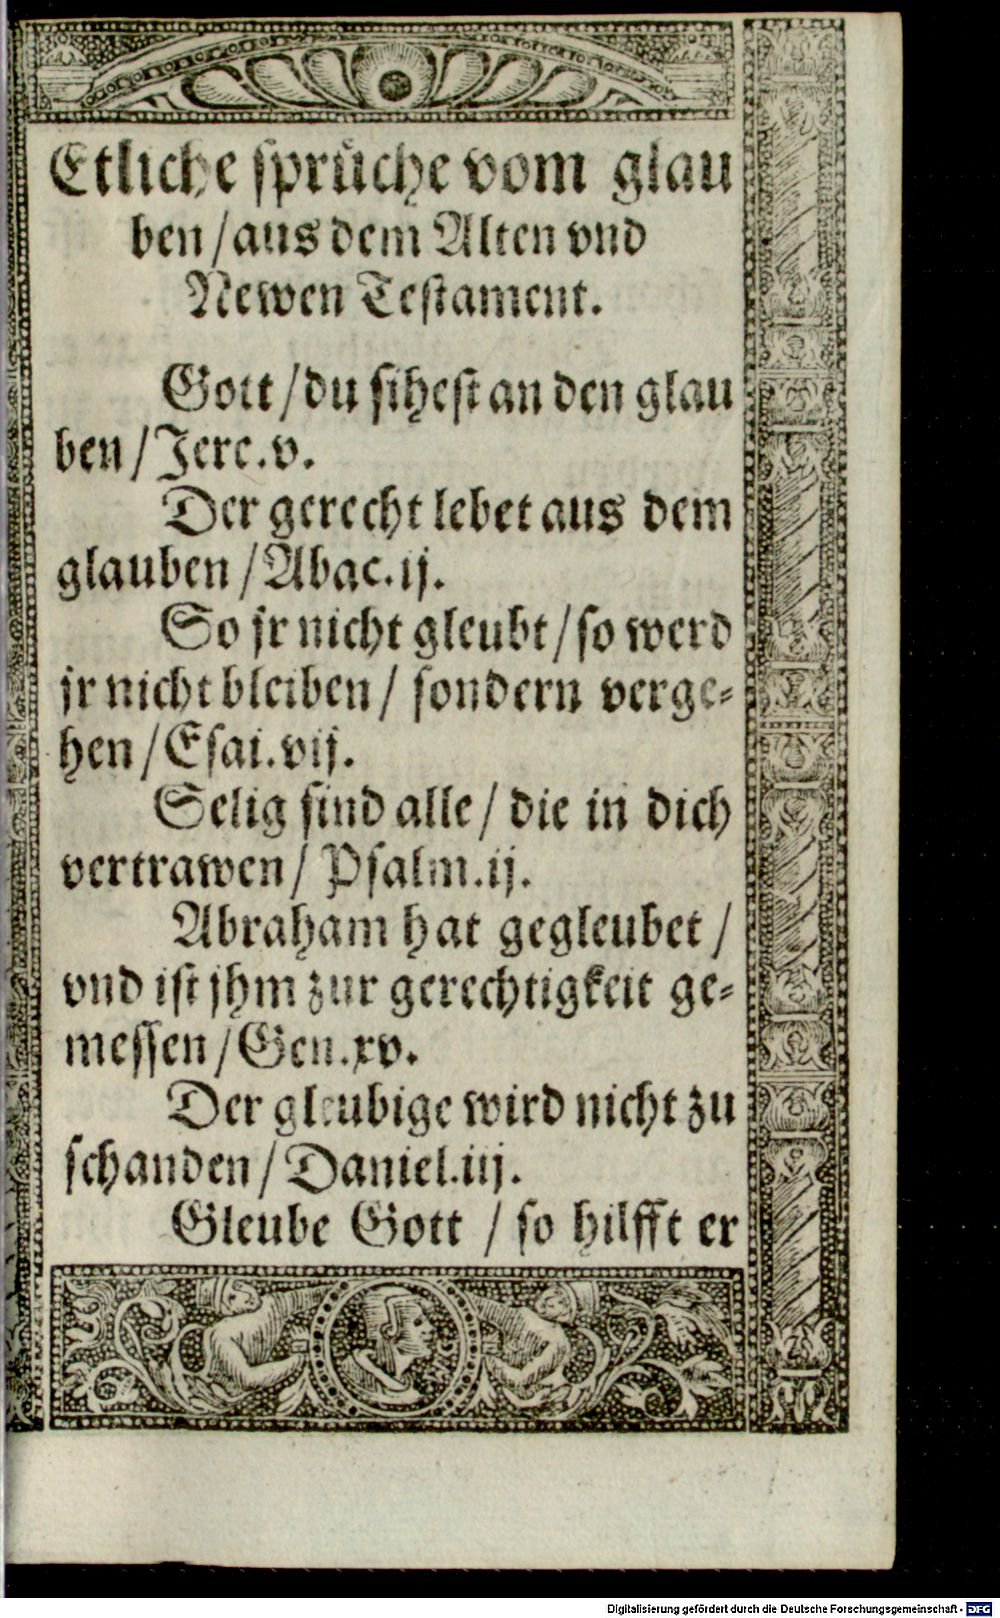 Etliche sprüche vom glau
ben / aus dem Alten vnd
Newen Testament.
Gott / du sihest an den glau
ben / Jere. v.
Der gerecht lebet aus dem
glauben / Abac. ij.
So jr nicht gleubt / so werd
jr nicht bleiben / sondern verge⸗
hen / Esai. vij.
Selig sind alle / die in dich
vertrawen / Psalm. ij.
Abraham hat gegleubet /
vnd ist jhm zur gerechtigkeit ge⸗
messen / Gen. xv.
Der gleubige wird nicht zu
schanden / Daniel. iij.
Gleube Gott / so hilfft er
Digitalisierung gefördert durch die Deutsche Forschungsgemeinschaft - DFG